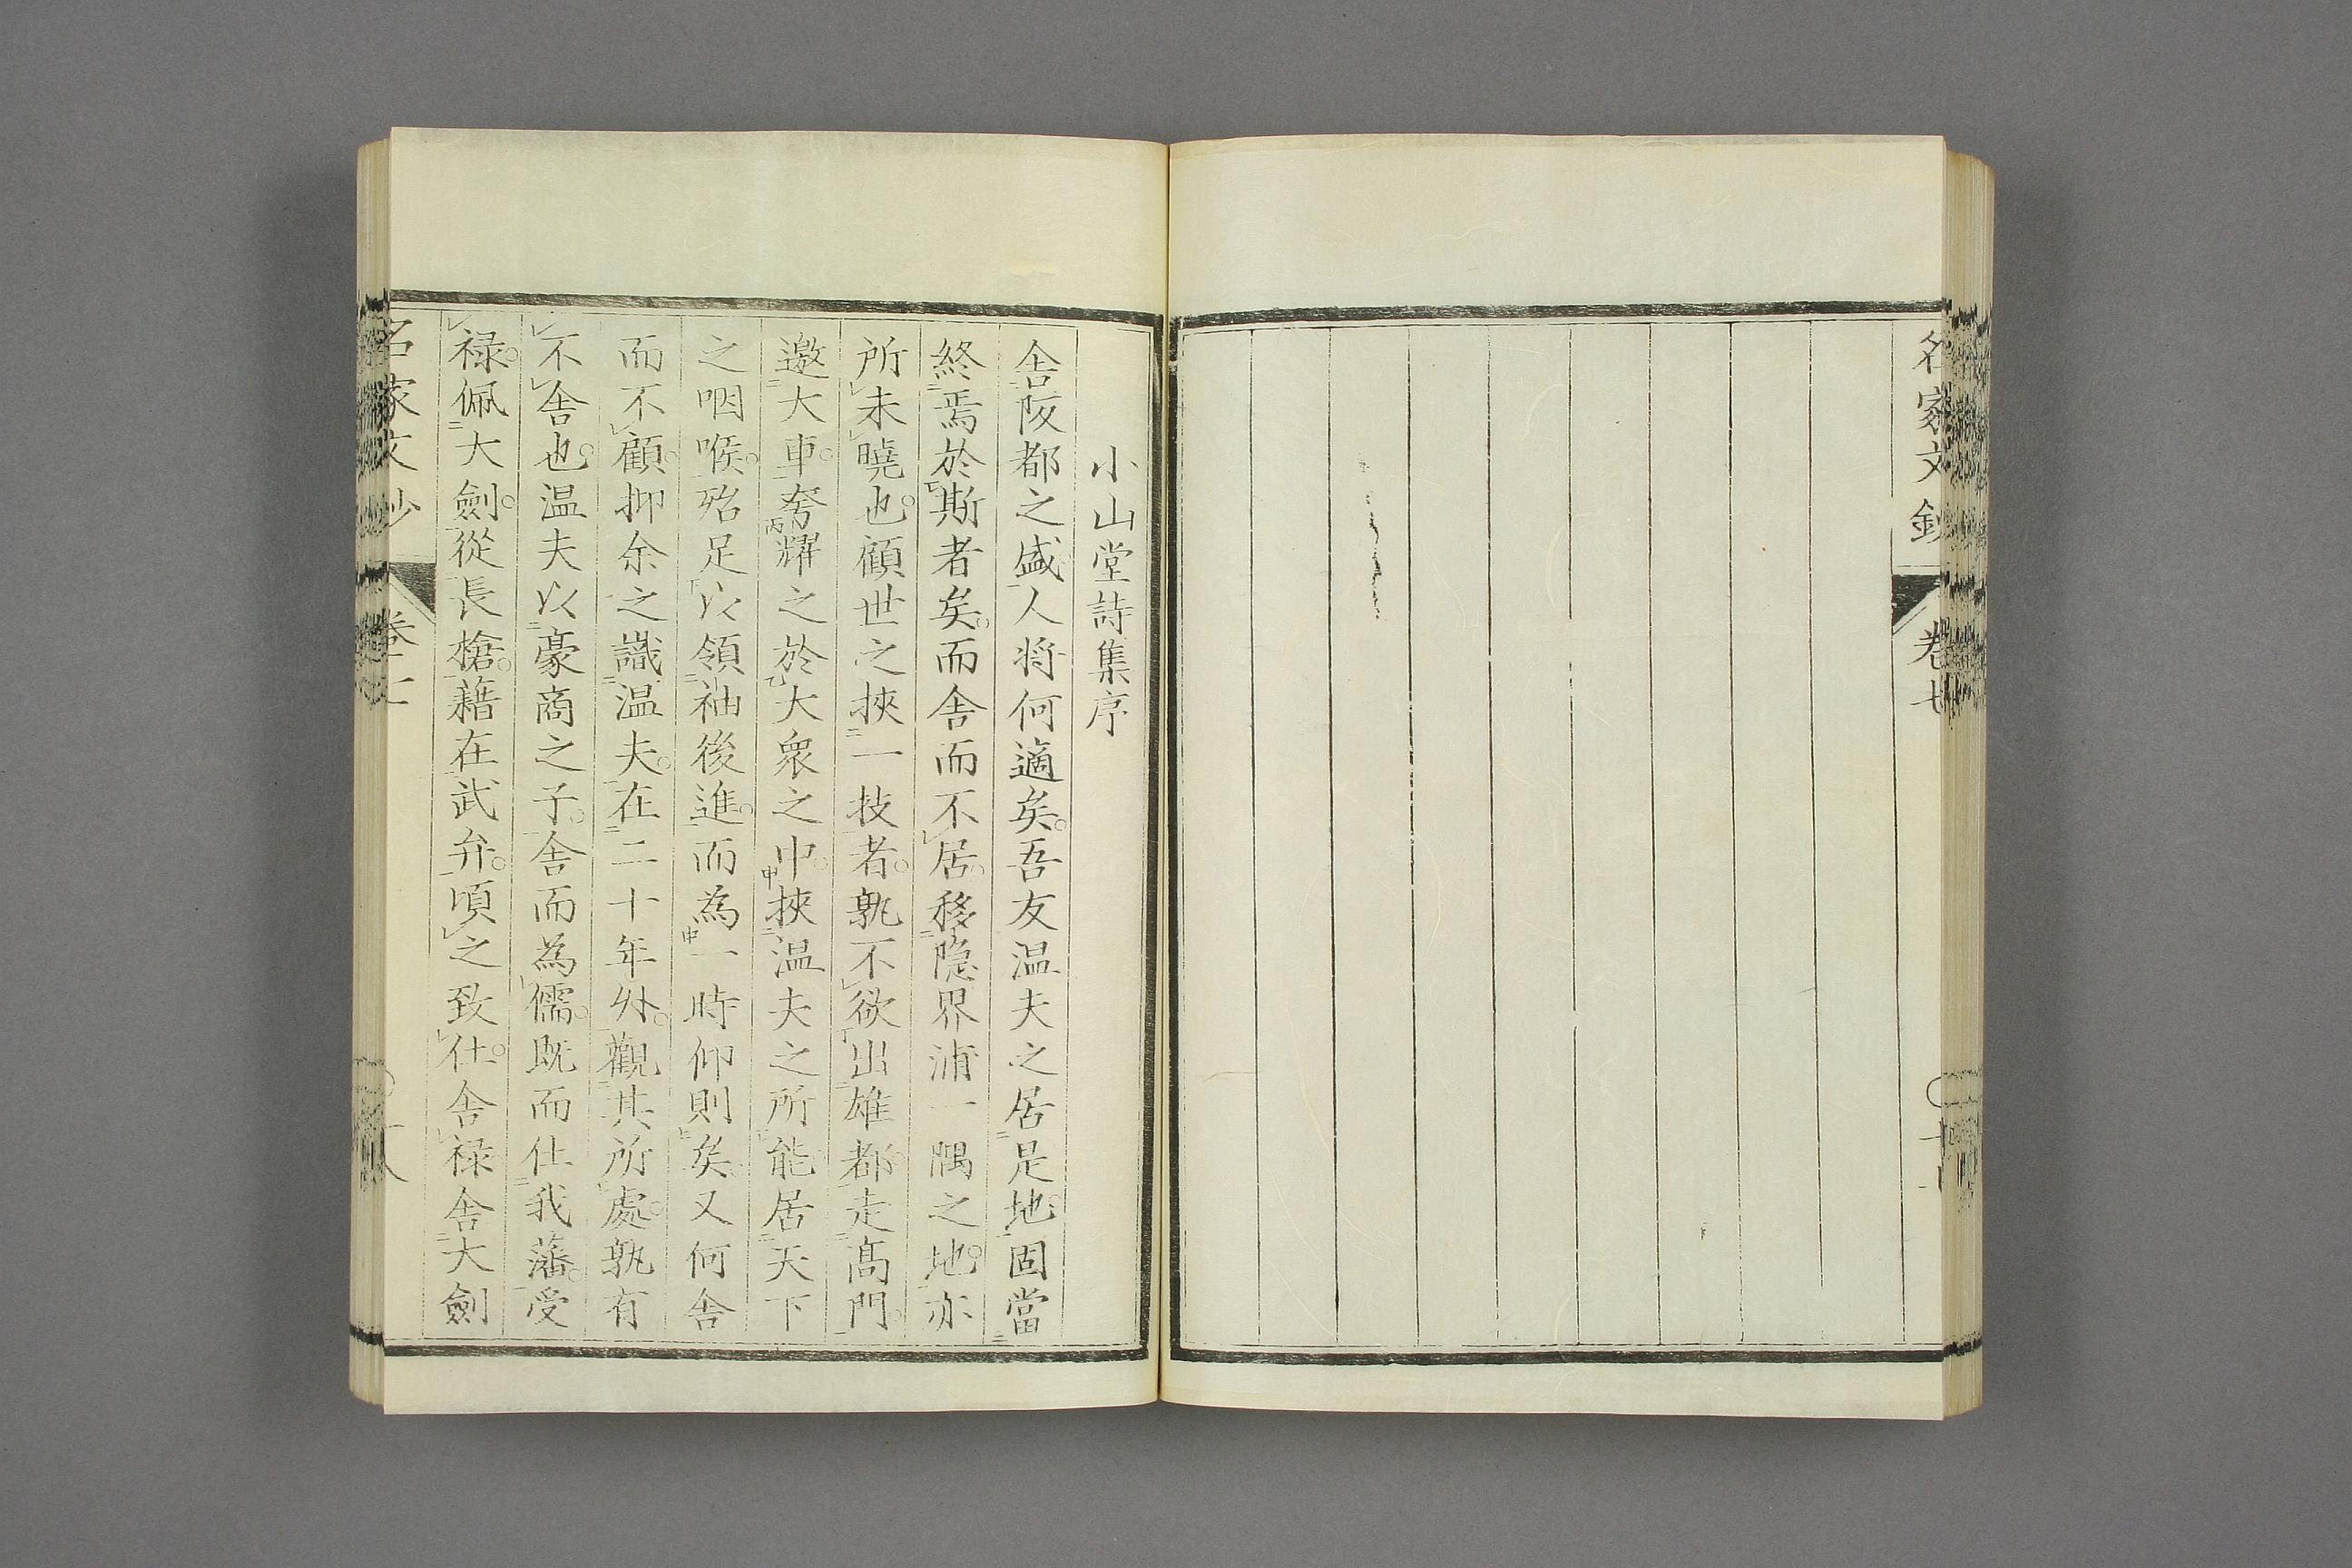 名家文鈔 卷七
小山堂詩集序
舎阪都之盛人将何適矣吾友温夫之居是地固當
終焉於斯者矣而舎而不居移隐界浦一隅之地亦
所未曉也顧世之挾一技者孰不欲出雄都走髙門
邀大車夸耀之於大衆之中挾温夫之所能居天下
之咽喉殆足以領袖後進而為一時仰則矣又何舎
而不顧抑余之識温夫在二十年外觀其所處孰有
不舎也温夫以豪商之子舎而為儒既而仕我藩受
禄佩大劍從長槍藉在武弁頃之致仕舎禄舎大劍
名家文鈔 卷七